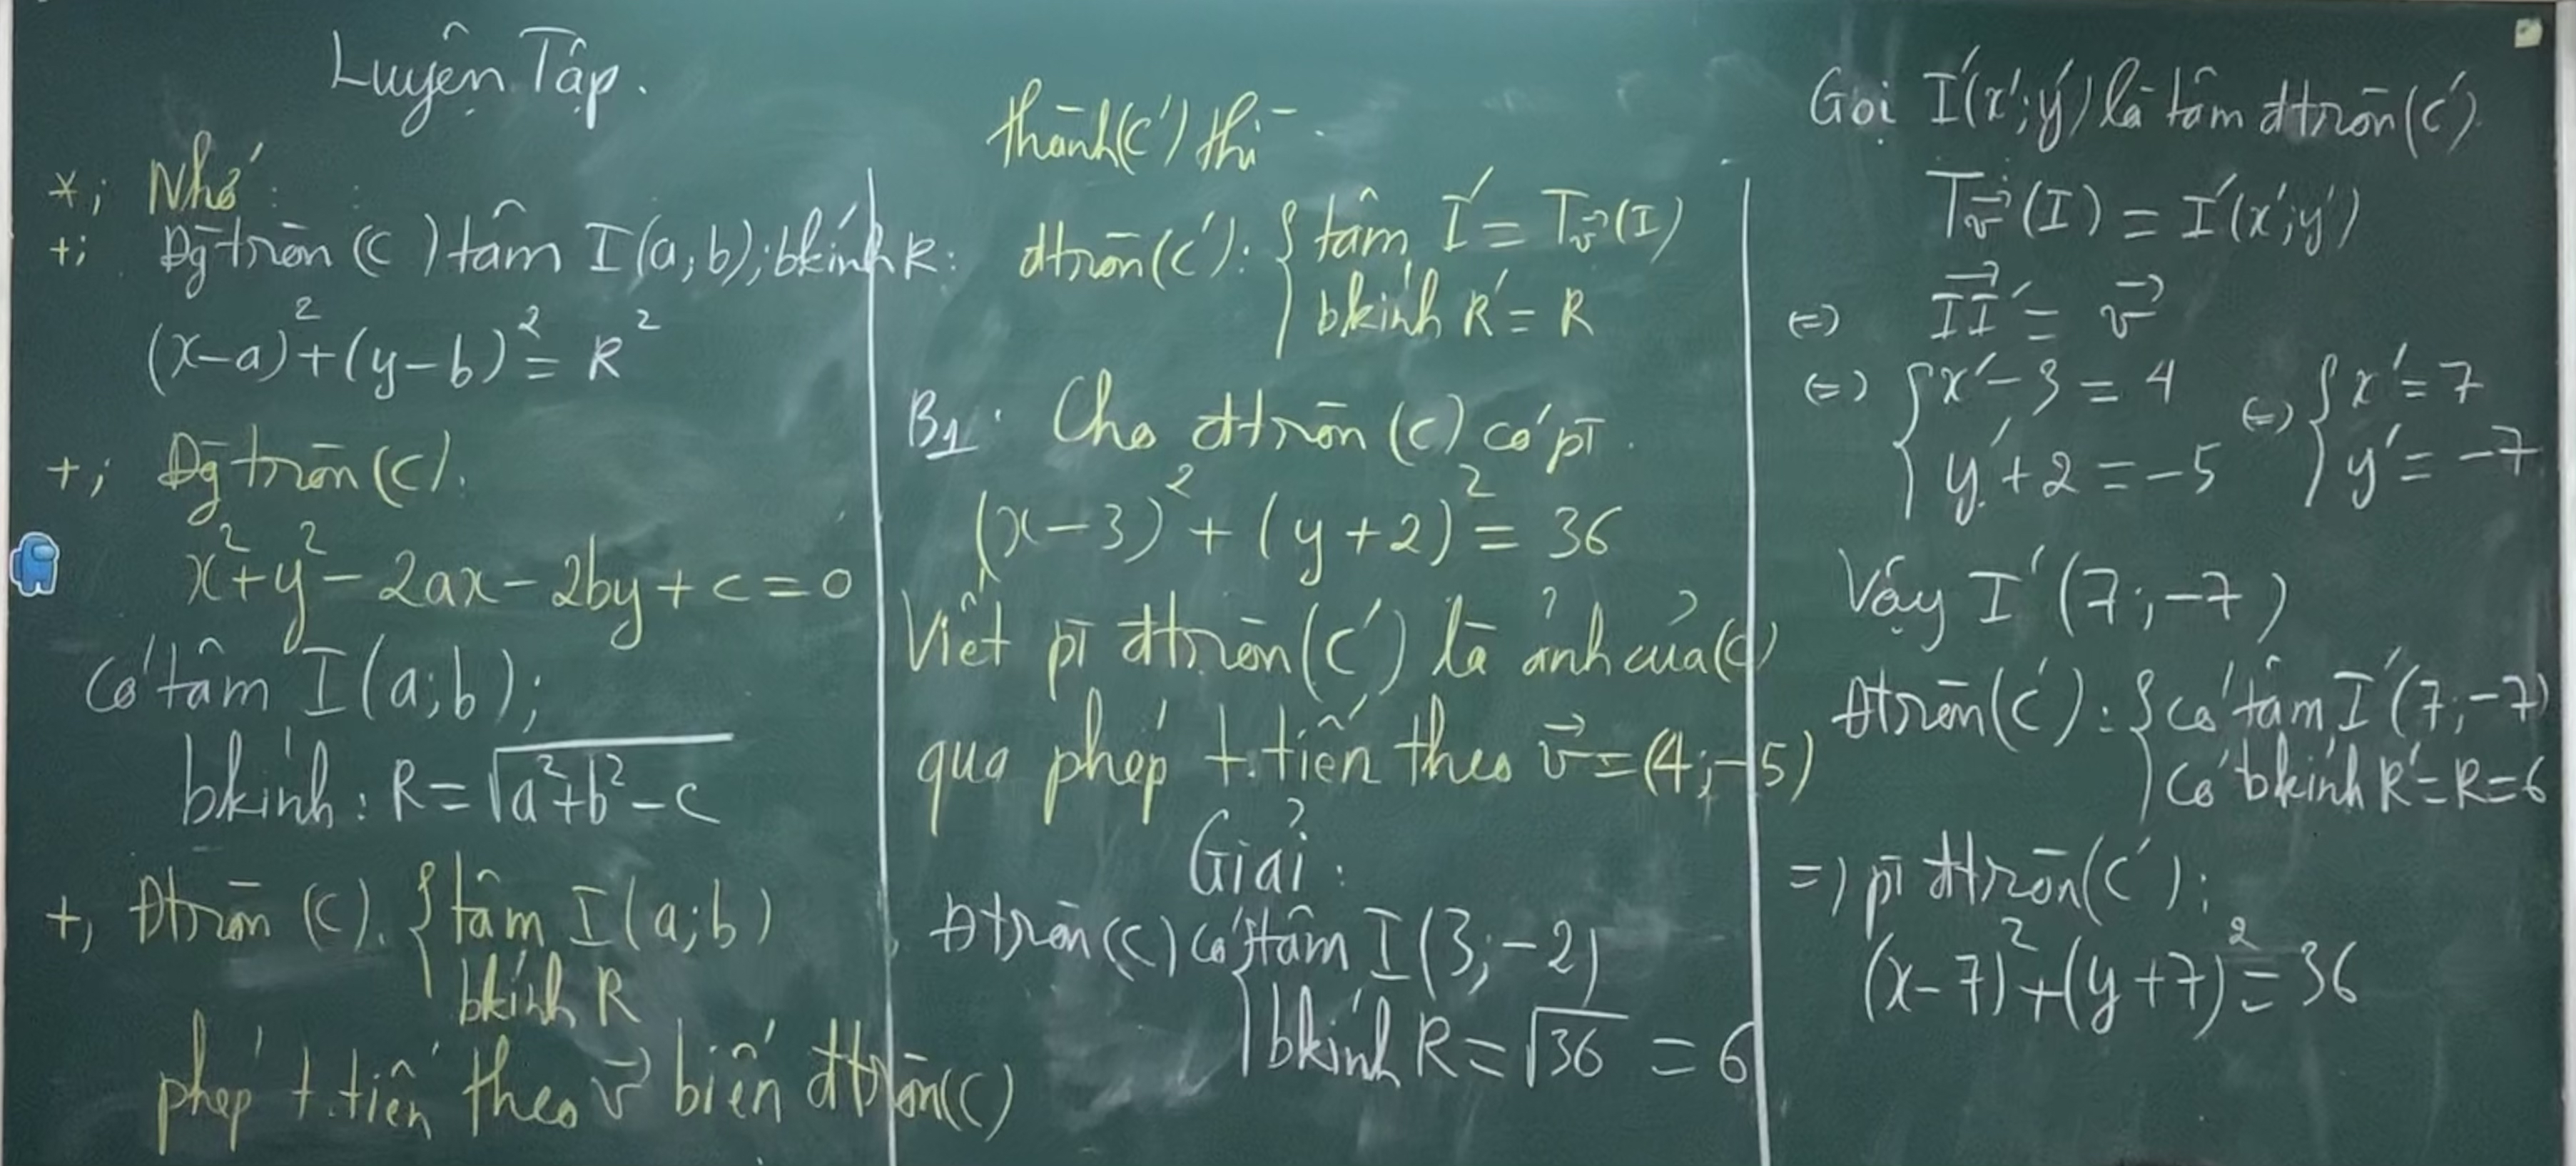 Luyện Tập.
*; Nhớ:
+; Đg tròn (C) tâm I(a;b); bkính R:
(x-a)² + (y-b)² = R²
+; Đg tròn (C).
x² + y² - 2ax - 2by + c = 0
Có tâm I(a;b);
bkính: R = √a²+b²-c
+, Đtròn (C). { tâm I(a;b)
bkính R
phép t.tiến theo v⃗ biến đtròn(C)
thành(C') thì
đtròn(C'): { tâm I' = Tv⃗(I)
bkính R' = R
B1. Cho đtròn (C) có pT
(x-3)² + (y+2)² = 36
Viết pT đtròn(C') là ảnh của(C)
qua phép t.tiến theo v⃗ = (4;-5)
Giải:
Đtròn(C) có { tâm I(3;-2)
bkính R = √36 = 6
Gọi I'(x';y') là tâm đtròn(C')
Tv⃗(I) = I'(x';y')
⇔ II'⃗ = v⃗
⇔ { x'-3 = 4 ⇔ { x' = 7
y'+2 = -5 y' = -7
Vậy I'(7;-7)
Đtròn(C'): { có tâm I'(7;-7)
có bkính R' = R = 6
=) pT đtròn(C'):
(x-7)² + (y+7)² = 36